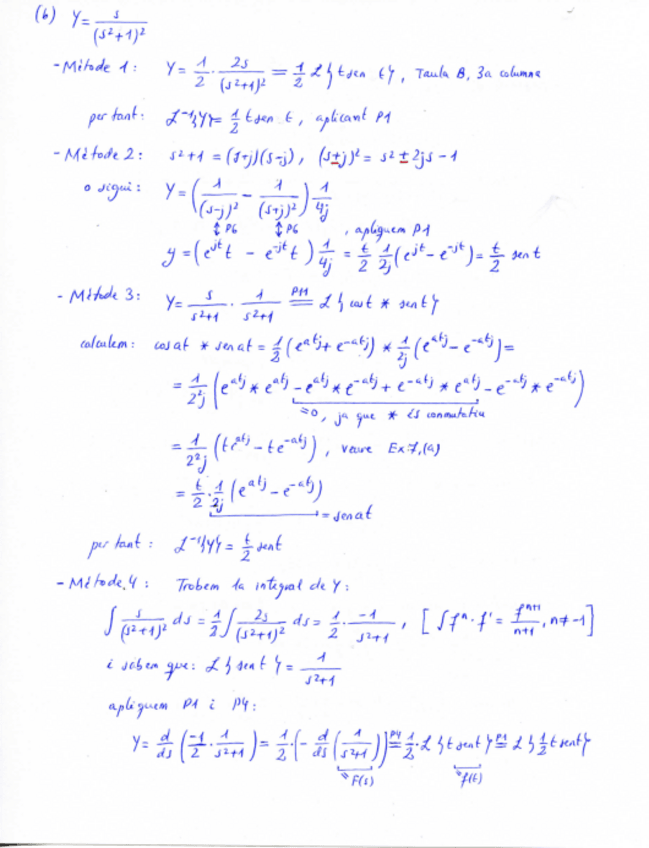 (b) Y = s/(s²+1)²
- Mètode 1: Y = 1/2 · 2s/(s²+1)² = 1/2 ℒ{t sen t}, Taula B, 3a columna
per tant: ℒ⁻¹{Y} = 1/2 t sen t, aplicant P1
- Mètode 2: s²+1 = (s+j)(s-j), (s±j)² = s² ± 2js - 1
o sigui: Y = (1/(s-j)² - 1/(s+j)²) 1/4j
↕ P6 ↕ P6 , apliquem P1
y = (e^{jt} t - e^{-jt} t) 1/4j = t/2 1/2j (e^{jt} - e^{-jt}) = t/2 sen t
- Mètode 3: Y = s/(s²+1) · 1/(s²+1) =^{P11} ℒ{cos t * sen t}
calculem: cos at * sen at = 1/2 (e^{atj} + e^{-atj}) * 1/2j (e^{atj} - e^{-atj}) =
= 1/2²j (e^{atj} * e^{atj} - e^{atj} * e^{-atj} + e^{-atj} * e^{atj} - e^{-atj} * e^{-atj})
=0, ja que * és conmutatiu
= 1/2²j (te^{atj} - te^{-atj}), veure Ex:7,(a)
= t/2 · 1/2j (e^{atj} - e^{-atj})
= sen at
per tant: ℒ⁻¹{Y} = t/2 sen t
- Mètode 4: Trobem la integral de Y:
∫ s/(s²+1)² ds = 1/2 ∫ 2s/(s²+1)² ds = 1/2 · -1/(s²+1), [∫fⁿ · f' = f^{n+1}/(n+1), n≠-1]
i sabem que: ℒ{sen t} = 1/(s²+1)
apliquem P1 i P4:
Y = d/ds (-1/2 · 1/(s²+1)) = 1/2 · (- d/ds (1/(s²+1))) =^{P4} 1/2 · ℒ{t sen t} =^{P1} ℒ{1/2 t sen t}
= F(s) = f(t)